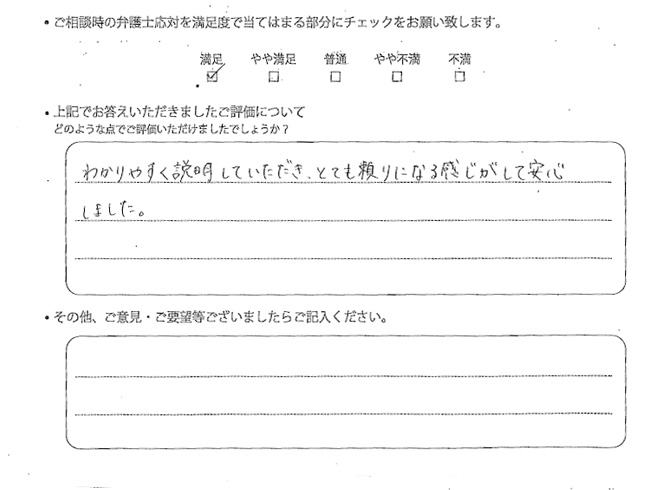 ・ご相談時の弁護士応対を満足度で当てはまる部分にチェックをお願い致します。
満足 やや満足 普通 やや不満 不満
・上記でお答えいただきましたご評価について
どのような点でご評価いただけましたでしょうか？
わかりやすく説明していただき、とても頼りになる感じがして安心
しました。
・その他、ご意見・ご要望等ございましたらご記入ください。